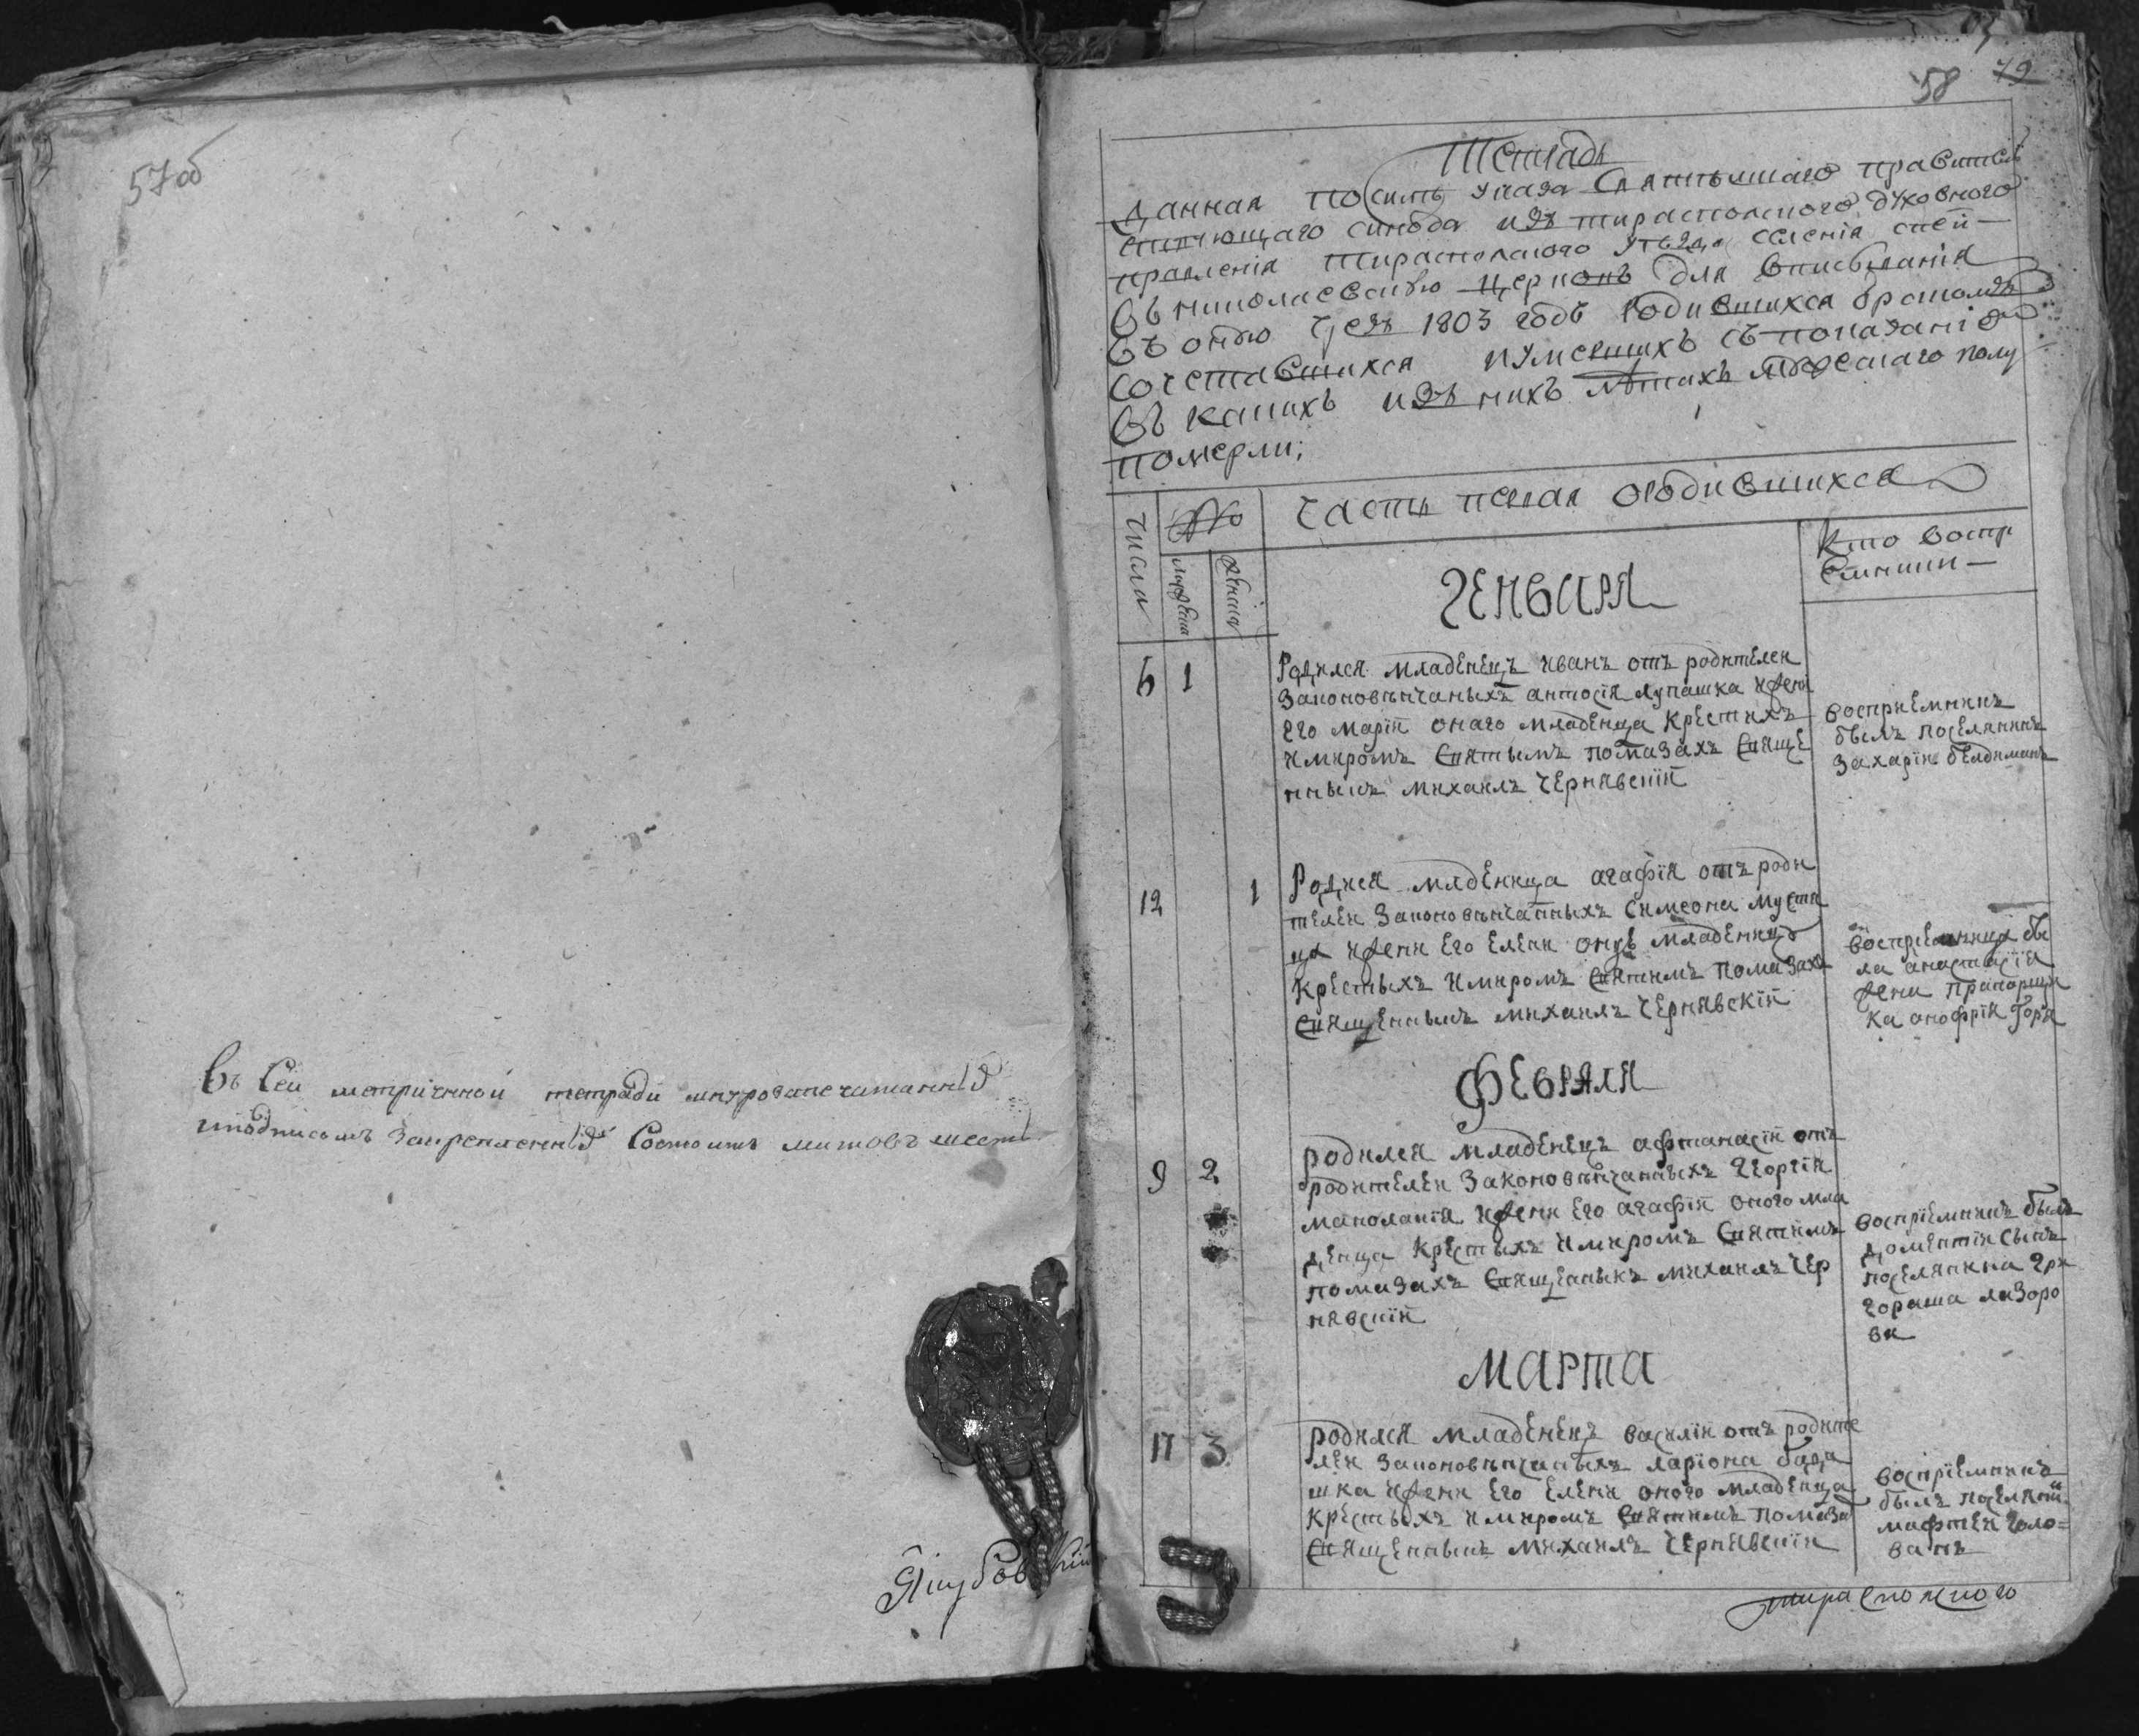 57об
Въ сеи метричной тетради шнурозапечатанной
иподписомъ закрепленной Состоитъ листовъ шесть
58 79
Тетрадь
Данная посилѣ указа Святѣйшаго правитель
ствующаго синода изъ тираспольского духовного
правленія тираспольского уѣзда селенія
въ николаевскую церковь для вписыванія
въ оную чрезъ 1803 годъ родившихся бракомъ
сочетавшихся иумершихъ съпоказаніемъ
въ какихъ изъ нихъ лѣтахъ полу
померли;
числа
№
мужеска
женска
часть первая ородившихся
Кто воспр
емники
ГЕНВАРЯ
6 1
Родился младенецъ иванъ отъ родителеи
законовѣнчаныхъ антосія лупашка ижени
его маріи онаго младенца крестихъ
имиромъ святымъ помазахъ свяще
нныкъ михаилъ чернявскій
восприемникъ
былъ поселянинъ
захаріи белдиманъ
12 1
Родися младеница агафія отъ роди
телеи законовѣнчанныхъ симеона муста
ца ижени его елени онуѣ младеницѣ
крестыхъ имиромъ святимъ помазахъ
священныкъ михаилъ чернявскій
восприемница бы
ла анастасія
жена прапорщи
ка анофрія
ФЕВРАЛЯ
9 2
родился младенецъ афтанасіи отъ
родителеи законовѣнчанныхъ георгія
маполанія ижени его агафіи оного мла
денца крестыхъ имиромъ святимъ
помазахъ священыкъ михаилъ чер
нявскіи
восприемникъ былъ
доментіи сынъ
поселянина гри
гораша лазоро
ви
МАРТА
17 3
родился младенецъ василіи отъ родите
леи законовѣнчаныхъ ларіона бада
шка ижени его елени оного младенца
крестыхъ имиромъ святимъ помаза
священныкъ михаилъ чернявскіи
восприемникъ
былъ поселянин
мафтеи голо=
ванъ
тираспольского